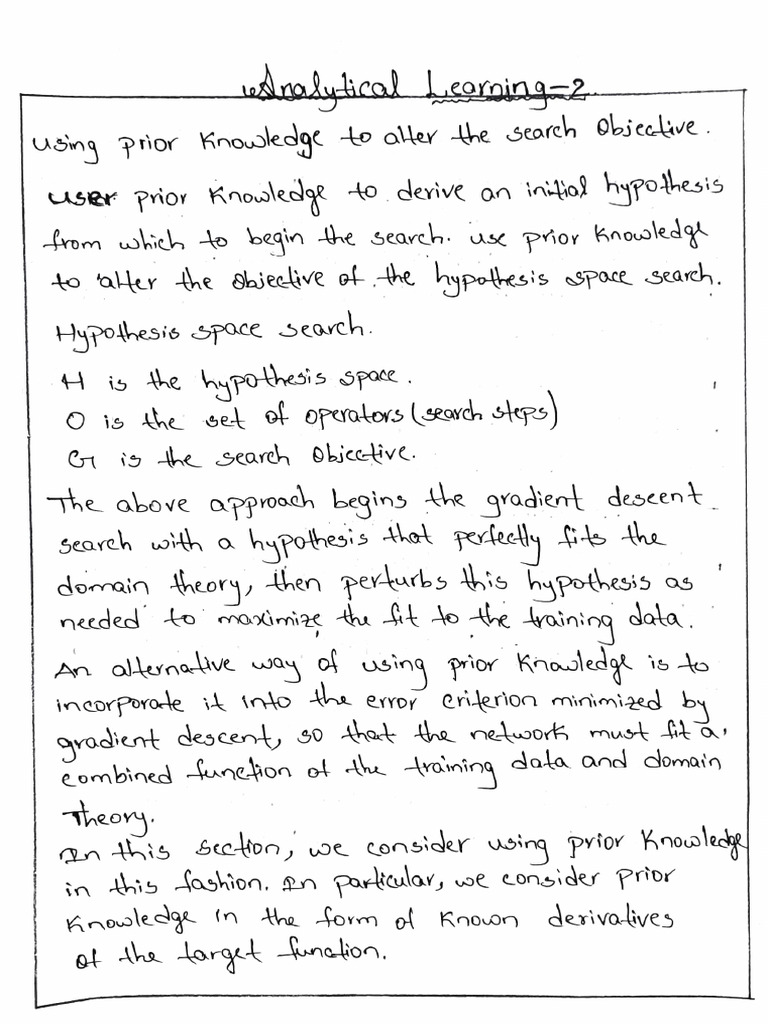 Analytical Learning-2
Using prior Knowledge to alter the search Objective.
User prior Knowledge to derive an initial hypothesis
from which to begin the search. use prior Knowledge
to alter the Objective of the hypothesis space search.
Hypothesis space search.
H is the hypothesis space.
O is the set of operators (search steps)
G is the search Objective.
The above approach begins the gradient descent
search with a hypothesis that perfectly fits the
domain theory, then perturbs this hypothesis as
needed to maximize the fit to the training data.
An alternative way of using prior Knowledge is to
incorporate it into the error criterion minimized by
gradient descent, so that the network must fit a
combined function of the training data and domain
Theory.
In this section, we consider using prior Knowledge
in this fashion. In particular, we consider prior
Knowledge in the form of Known derivatives
of the target function.